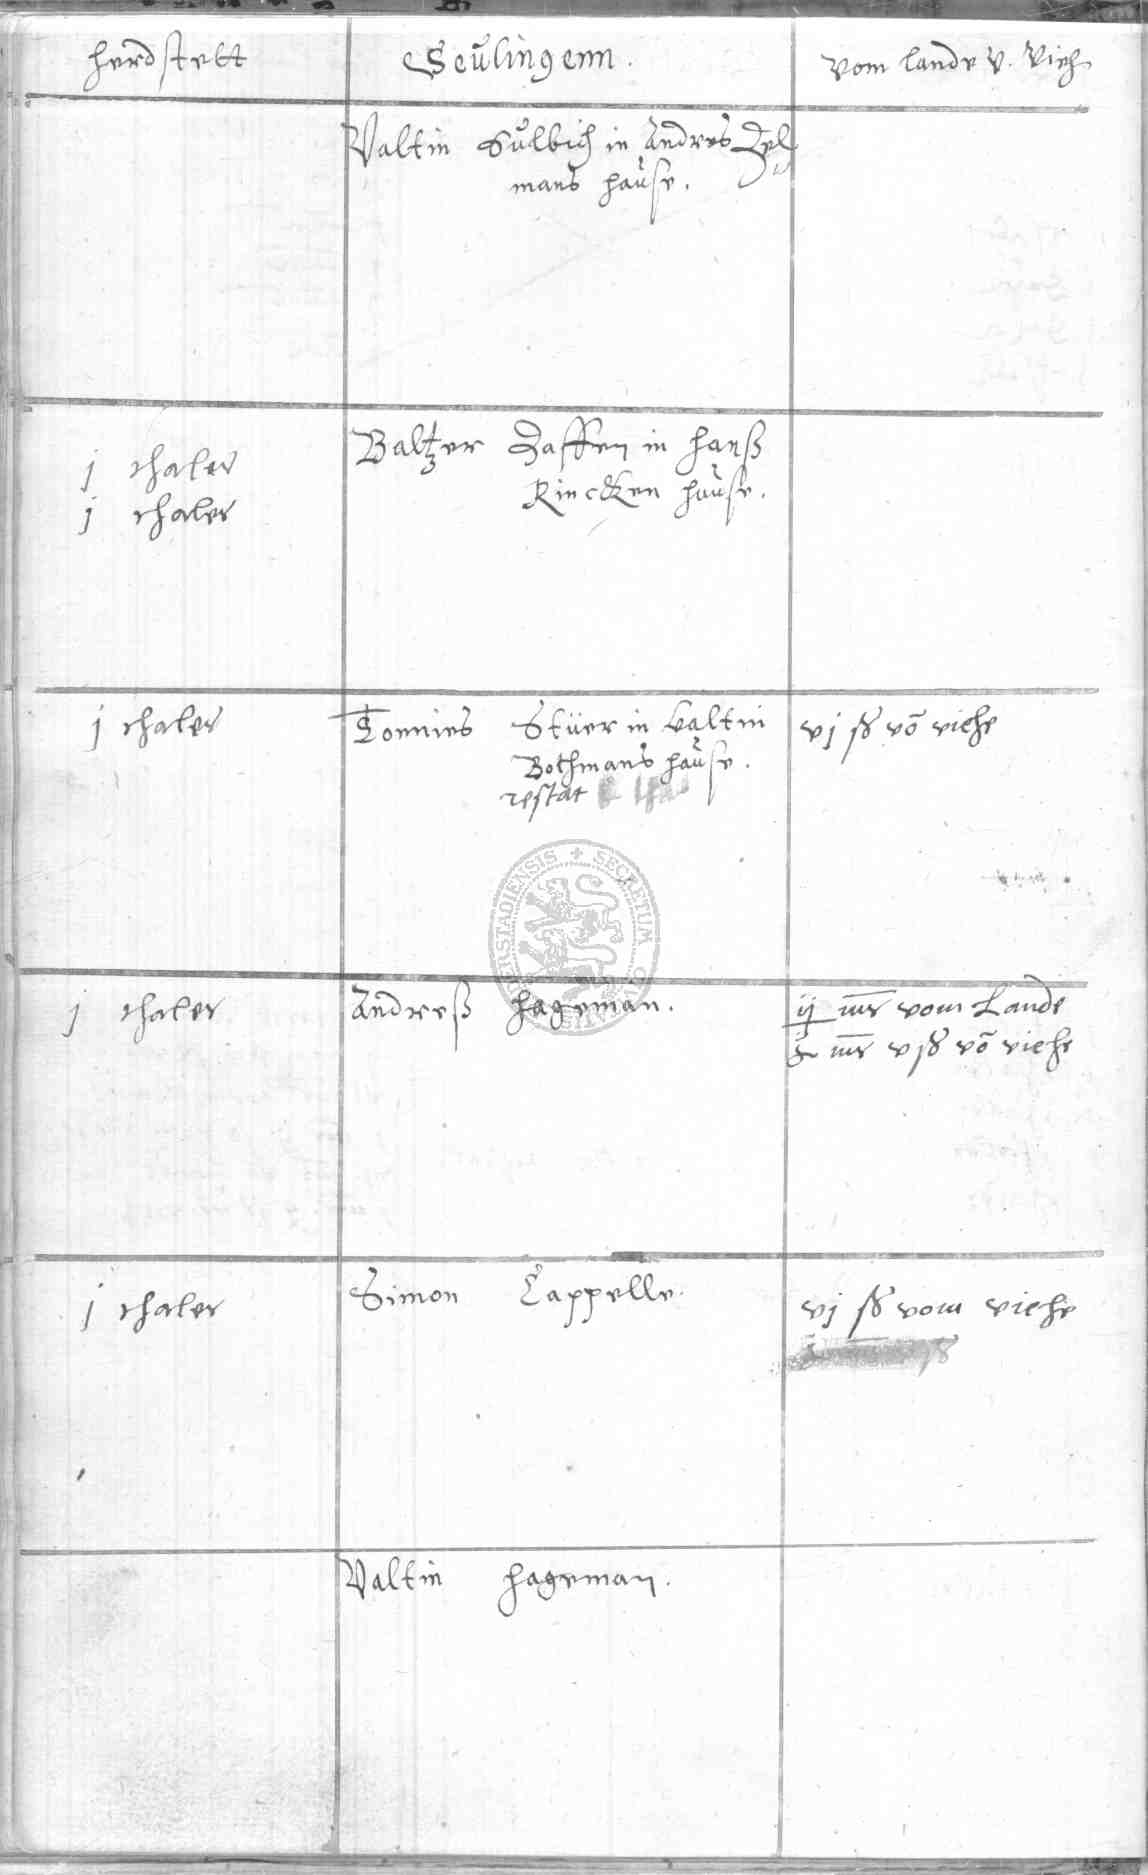 herdstett
Seulingenn.
vom lande v. Vieh
Valtin Sulbich in Andres
mans hause.
j thaler
j thaler
Baltzer Zaffen in hanß
Rincken hause.
j thaler
Tonnies Stüer in valtin
Bothmans hause.
restat
vj ß vō viehe
j thaler
Andreß Hageman.
ij mr vom Lande
mr v ß vō viehe
j thaler
Simon Cappelle.
vj ß vom viehe
Valtin Hageman.
SECRETUM